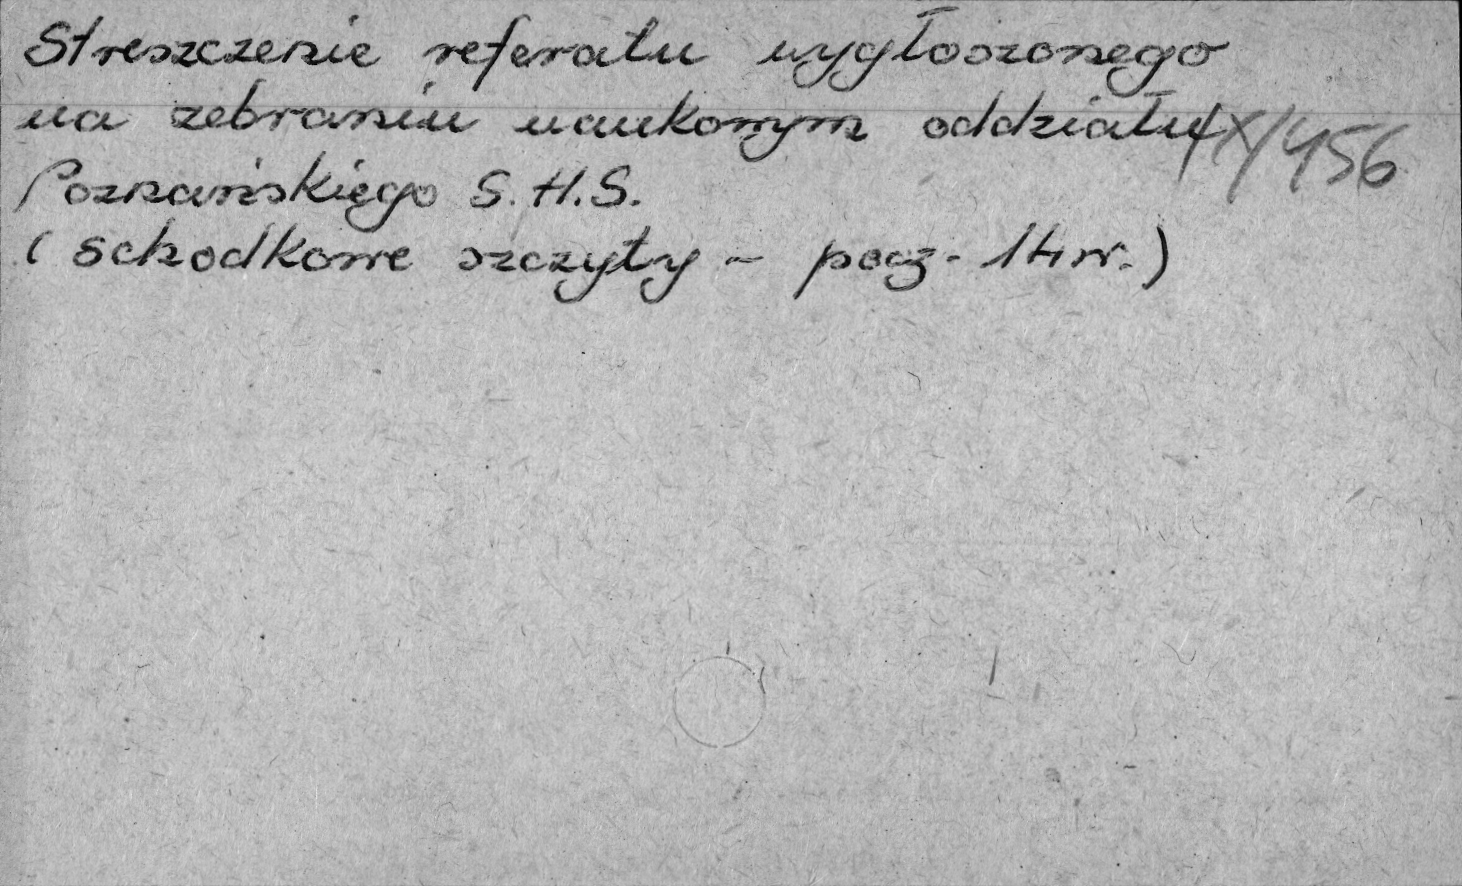 Streszczenie referatu wygłoszonego
na zebraniu naukowym oddziału IX/456
Poznańskiego S.H.S.
(schodkowe szczyty - pocz. 14 w.)